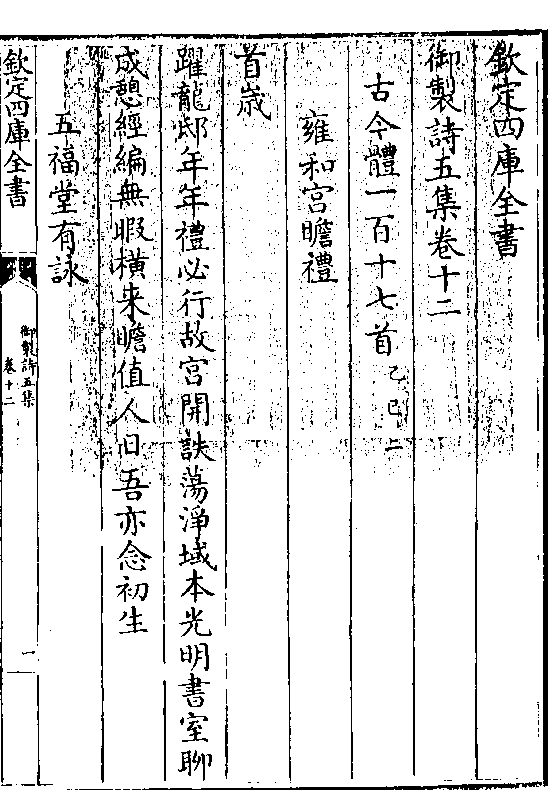 欽定四庫全書
御製詩五集卷十二
古今體一百十七首乙巳二
雍和宮瞻禮
首歲
躍龍邸年年禮必行故宮開詄蕩淨域本光明書室聊
成憩經編無暇橫来瞻值人日吾亦念初生
五福堂有詠
欽定四庫全書
御製詩五集
卷十二
一